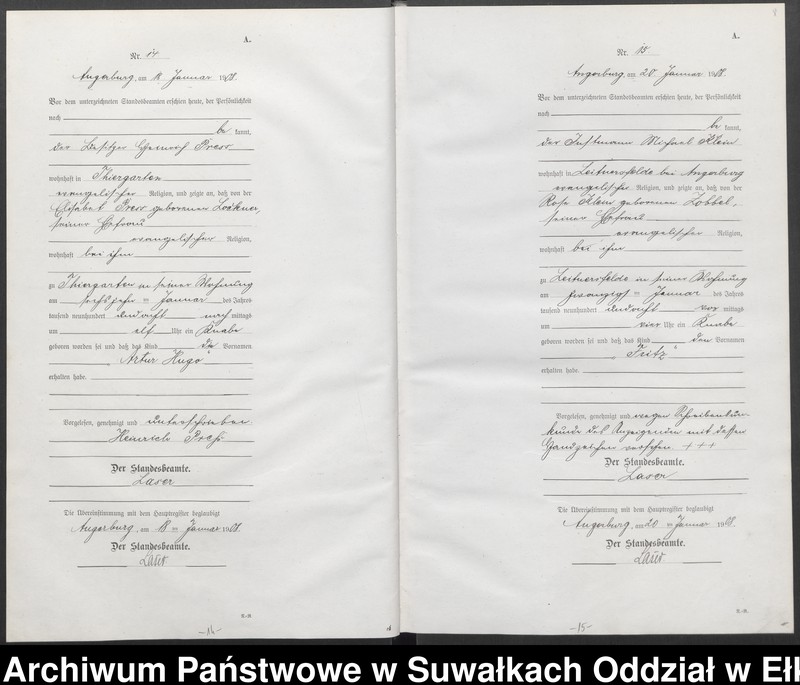 A.
Nr. 14
Angerburg, am 18. Januar 1908.
Vor dem unterzeichneten Standesbeamten erschien heute, der Persönlichkeit
nach
be kannt,
der Besitzer Heinrich Press
wohnhaft in Thiergarten
evangelischer Religion, und zeigte an, daß von der
Elisabet Press geborenen Lockner,
seiner Ehefrau
evangelischer Religion,
wohnhaft bei ihm
zu Thiergarten in seiner Wohnung
am sechszehn = Januar des Jahres
tausend neunhundert undacht nach mittags
um elf Uhr ein Knabe
geboren worden sei und daß das Kind die Vornamen
„Artur Hugo“
erhalten habe.
Vorgelesen, genehmigt und unterschrieben
Heinrich Preß.
Der Standesbeamte.
Laser
Die Übereinstimmung mit dem Hauptregister beglaubigt
Angerburg, am 18 = Januar 1908.
Der Standesbeamte.
Laser
-14-
A.
Nr. 15
Angerburg, am 20. Januar 1908.
Vor dem unterzeichneten Standesbeamten erschien heute, der Persönlichkeit
nach
be kannt,
der Instmann Michael Klein
wohnhaft in Leitnersfelde bei Angerburg
evangelischer Religion, und zeigte an, daß von der
Rosa Klein geborenen Zobbel,
seiner Ehefrau
evangelischer Religion,
wohnhaft bei ihm
zu Leitnersfelde in seiner Wohnung
am zwanzigst = Januar des Jahres
tausend neunhundert undacht vor mittags
um vier Uhr ein Knabe
geboren worden sei und daß das Kind den Vornamen
„Fritz“
erhalten habe.
Vorgelesen, genehmigt und wegen Schreibenun-
kunde des Anzeigenden mit dessen
Handzeichen versehen. +++
Der Standesbeamte.
Laser
Die Übereinstimmung mit dem Hauptregister beglaubigt
Angerburg, am 20 = Januar 1908.
Der Standesbeamte.
Laser
-15-
Archiwum Państwowe w Suwałkach Oddział w Ełk